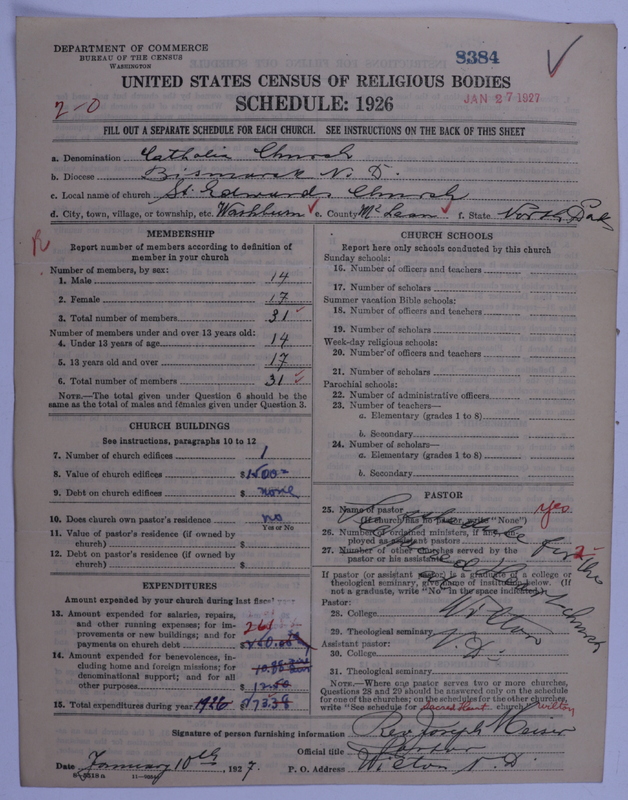 DEPARTMENT OF COMMERCE
BUREAU OF THE CENSUS
WASHINGTON
8384
UNITED STATES CENSUS OF RELIGIOUS BODIES
2-0
SCHEDULE: 1926
JAN 27 1927
FILL OUT A SEPARATE SCHEDULE FOR EACH CHURCH. SEE INSTRUCTIONS ON THE BACK OF THIS SHEET
a. Denomination Catholic Church
b. Diocese Bismarck N. D.
c. Local name of church St. Edwards Church
d. City, town, village, or township, etc. Washburn e. County McLean f. State North Dak
R
MEMBERSHIP
Report number of members according to definition of
member in your church
Number of members, by sex:
1. Male 14
2. Female 17
3. Total number of members 31
Number of members under and over 13 years old:
4. Under 13 years of age 14
5. 13 years old and over 17
6. Total number of members 31
NOTE.—The total given under Question 6 should be
same as the total of males and females given under Question 3.
CHURCH BUILDINGS
See instructions, paragraphs 10 to 12
7. Number of church edifices 1
8. Value of church edifices $1500
9. Debt on church edifices $ none
10. Does church own pastor's residence no
Yes or No
11. Value of pastor's residence (if owned by
church) $
12. Debt on pastor's residence (if owned by
church) $
EXPENDITURES
Amount expended by your church during last fiscal
13. Amount expended for salaries, repairs,
and other running expenses; for im-
provements or new buildings; and for
payments on church debt 261
14. Amount expended for benevolences, in-
cluding home and foreign missions; for
denominational support; and for all
other purposes $ 12.50
15. Total expenditures during year 1926 $
CHURCH SCHOOLS
Report here only schools conducted by this church
Sunday schools:
16. Number of officers and teachers
17. Number of scholars
Summer vacation Bible schools:
18. Number of officers and teachers
19. Number of scholars
Week-day religious schools:
20. Number of officers and teachers
21. Number of scholars
Parochial schools:
22. Number of administrative officers
23. Number of teachers—
a. Elementary (grades 1 to 8)
b. Secondary
24. Number of scholars—
a. Elementary (grades 1 to 8)
b. Secondary
PASTOR
25. Name of pastor yes
(If church has no pastor, write "None")
26. Number of ordained ministers, if any, em-
ployed as assistant pastors
27. Number of other churches served by the
pastor or his assistants 2
If pastor (or assistant pastor) is a graduate of a college or
theological seminary, give name of institution below. (If
not a graduate, write "No" in the space indicated):
Pastor:
28. College
29. Theological seminary
Assistant pastor:
30. College
31. Theological seminary
Wilton
N. D.
NOTE.—Where one pastor serves two or more churches,
Questions 28 and 29 should be answered only on the schedule
for one of the churches; on the schedules for the other churches,
write "See schedule for Sacred Heart church" Wilton
Signature of person furnishing information Rev. Joseph Meiser
Official title Pastor
Date January 10th, 1927. P. O. Address Wilton N. D.